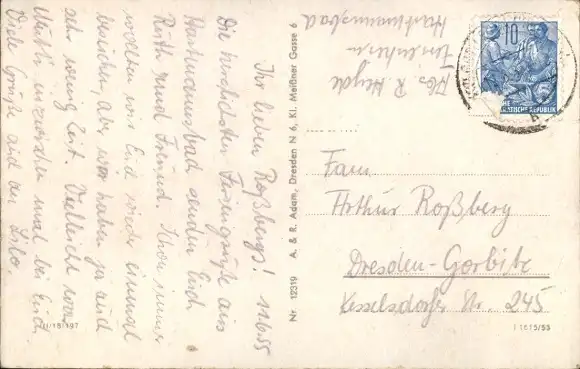 Ihr lieben Roßbergs! 11.6.55
Die herzlichsten Feriengrüße aus
Hartmannsbad senden Euch
Ruth und Freund. Schon immer
wollten wir Euch einmal
besuchen, aber wir haben ja auch
sehr wenig Zeit. Vielleicht
mal bei Euch.
Viele Grüße auch an Lilo.
III/18/197
Nr 12319 A. & R. Adam, Dresden N 6, Kl. Meißner Gasse 6
Abs. R. Heyde
Hartmannsbad
10
DEUTSCHE DEMOKRATISCHE REPUBLIK
Fam
Arthur Roßberg
Dresden-Gorbitz
Kesselsdorfer Str. 245